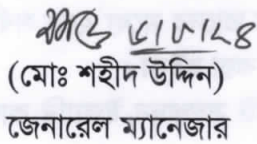 (মোঃ শহীদ উদ্দিন)
জেনারেল ম্যানেজার